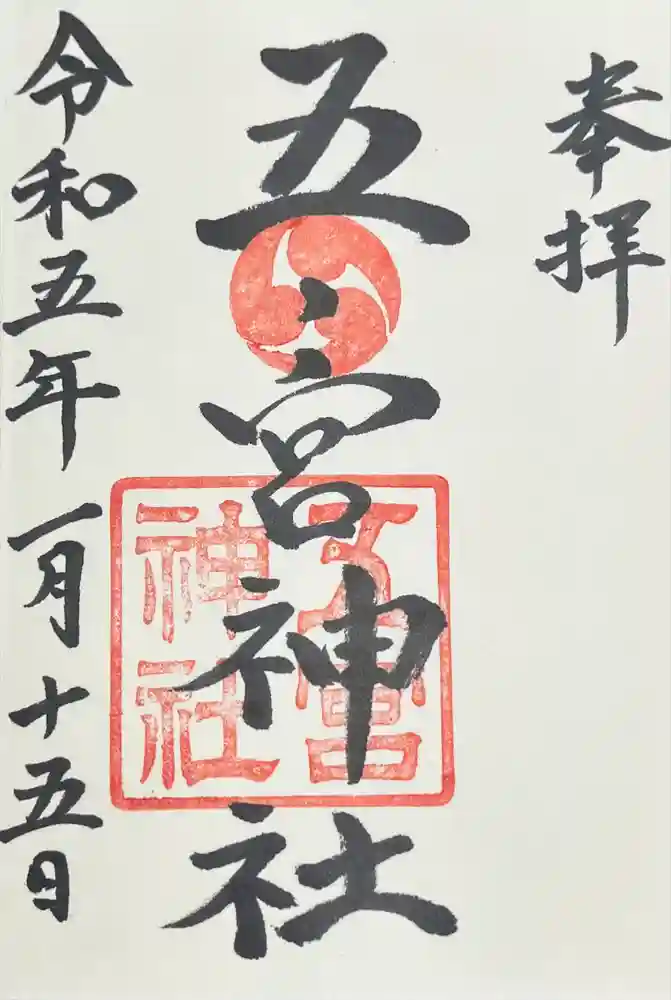 奉拝
五ノ宮神社
五宮
神社
令和五年一月十五日